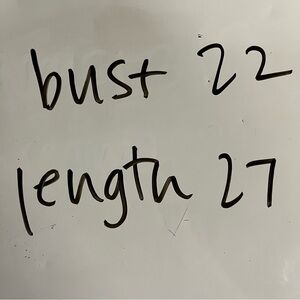 bust 22
length 27